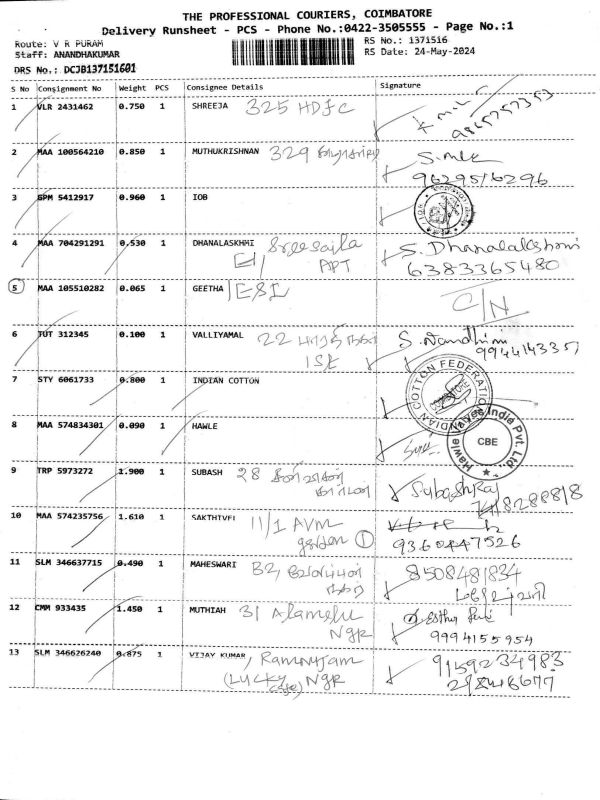 THE PROFESSIONAL COURIERS, COIMBATORE
Delivery Runsheet - PCS - Phone No.:0422-3505555 - Page No.:1
Route: V R PURAM
Staff: ANANDHAKUMAR
DRS No.: DCJB137151601
RS No.: 1371516
RS Date: 24-May-2024
S No Consignment No Weight PCS Consignee Details Signature
1 VLR 2431462 0.750 1 SHREEJA 325 HDFC
2 MAA 100564210 0.850 1 MUTHUKRISHNAN 329
9629516296
3 GPM 5412917 0.960 1 IOB
4 MAA 704291291 0.530 1 DHANALASKHMI Sreesaila S. Dhanalakshmi
E1, APT 6383365480
5 MAA 105510282 0.065 1 GEETHA ESI C/N
6 TUT 312345 0.100 1 VALLIYAMAL 22 S. Nandhini
1st 9944143357
7 STY 6061733 0.800 1 INDIAN COTTON
INDIAN COTTON FEDERATION
8 MAA 574834301 0.090 1 HAWLE
Hawle Valves India Pvt. Ltd.
CBE
9 TRP 5973272 1.900 1 SUBASH 28 SubashRaj
10 MAA 574235756 1.610 1 SAKTHIVEL 11/1 AVM
1 9360447526
11 SLM 346637715 0.490 1 MAHESWARI B2, 8508481834
12 CMM 933435 1.450 1 MUTHIAH 31 Alamelu Esther
NGR 9994155954
13 SLM 346626240 0.875 1 VIJAY KUMAR, Ramnujam 9159234983
(Lucky cafe) NGR